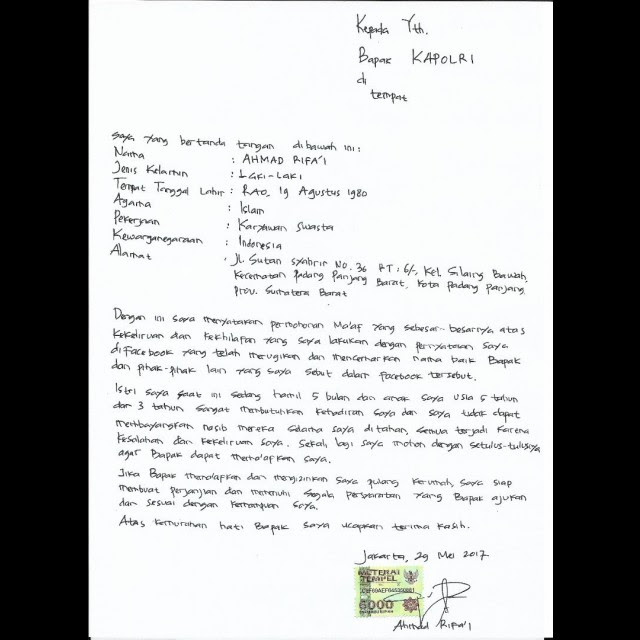 Kepada Yth.
Bapak KAPOLRI
di
tempat
Saya yang bertanda tangan dibawah ini :
Nama : AHMAD RIFA'I
Jenis Kelamin : LAKI-LAKI
Tempat Tanggal Lahir : RAO, 19 Agustus 1980
Agama : Islam
Pekerjaan : Karyawan Swasta
Kewarganegaraan : Indonesia
Alamat : Jl. Sutan Syahrir No. 36 RT : 6/-, Kel. Silaing Bawah,
Kecamatan Padang Panjang Barat, Kota Padang Panjang.
Prov. Sumatera Barat
Dengan ini saya menyatakan permohonan Ma'af yang sebesar-besarnya atas
Kekeliruan dan Kekhilafan yang saya lakukan dengan pernyataan saya
diFacebook yang telah merugikan dan mencemarkan nama baik Bapak
dan pihak-pihak lain yang saya sebut dalam facebook tersebut.
Istri saya saat ini sedang hamil 5 bulan dan anak saya usia 5 tahun
dan 3 tahun sangat membutuhkan Kehadiran saya dan saya tidak dapat
membayangkan nasib mereka selama saya ditahan, semua terjadi karena
Kesalahan dan Kekeliruan saya. Sekali lagi saya mohon dengan setulus-tulusnya
agar Bapak dapat mema'afkan saya.
Jika Bapak mema'afkan dan mengizinkan saya pulang kerumah, saya siap
membuat perjanjian dan memenuhi segala persyaratan yang Bapak ajukan
dan sesuai dengan Kemampuan saya.
Atas Kemurahan hati Bapak saya ucapkan terima Kasih.
Jakarta, 29 Mei 2017
METERAI
TEMPEL
6000
Ahmad Rifa'i